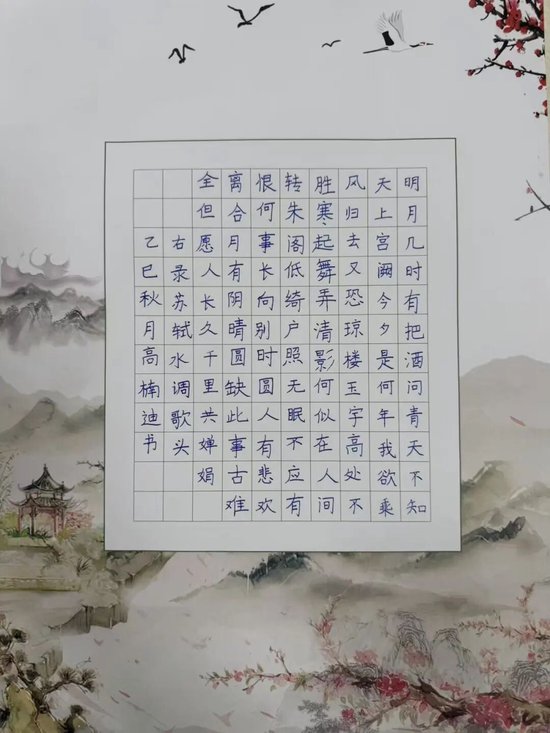 明月几时有把酒问青天不知
天上宫阙今夕是何年我欲乘
风归去又恐琼楼玉宇高处不
胜寒起舞弄清影何似在人间
转朱阁低绮户照无眠不应有
恨何事长向别时圆人有悲欢
离合月有阴晴圆缺此事古难
全但愿人长久千里共婵娟
右录苏轼水调歌头
乙巳秋月高楠迪书